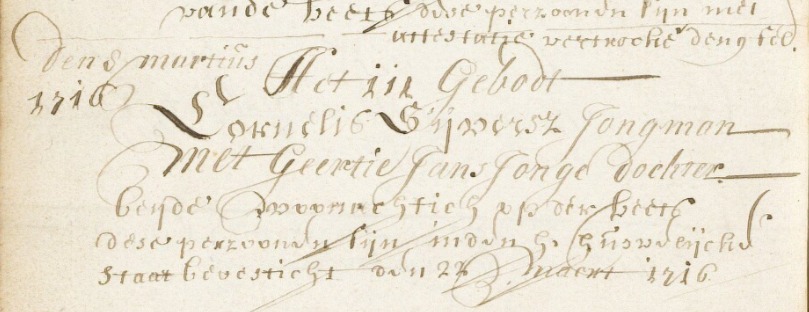 vande beets dese perzoonen sijn met
attestatie vertrocke den 9 feb.
den 8 martius Het iii Gebodt
1716
Cornelis Sijversz Jongman
met Geertie Jans Jonge dochter
beijde woonachtich op der beets
dese perzoonen sijn inden h. huwelijcke
staat bevesticht den 22 maert 1716